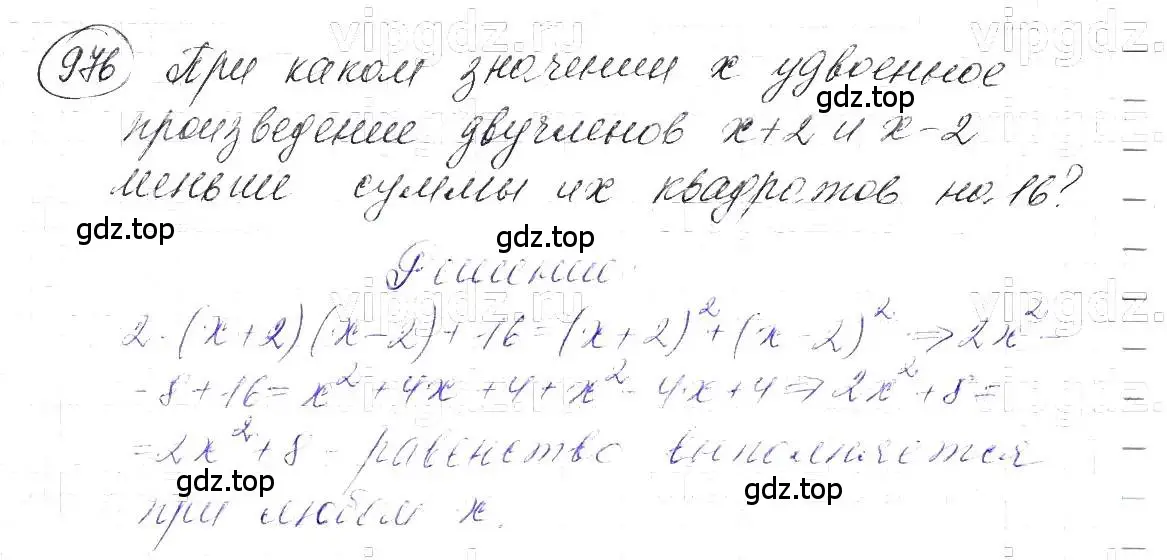 976 При каком значении x удвоенное
произведение двучленов x+2 и x-2
меньше суммы их квадратов на 16?
Решение.
2·(x+2)(x-2)+16=(x+2)²+(x-2)² ⇒ 2x²-
-8+16=x²+4x+4+x²-4x+4 ⇒ 2x²+8=
=2x²+8 - равенство выполняется
при любом x.
vipgdz.ru
vipgdz.ru
gdz.top
gdz.top
gdz.top
vipgdz.ru
vipgdz.ru
gdz.top
gdz.top